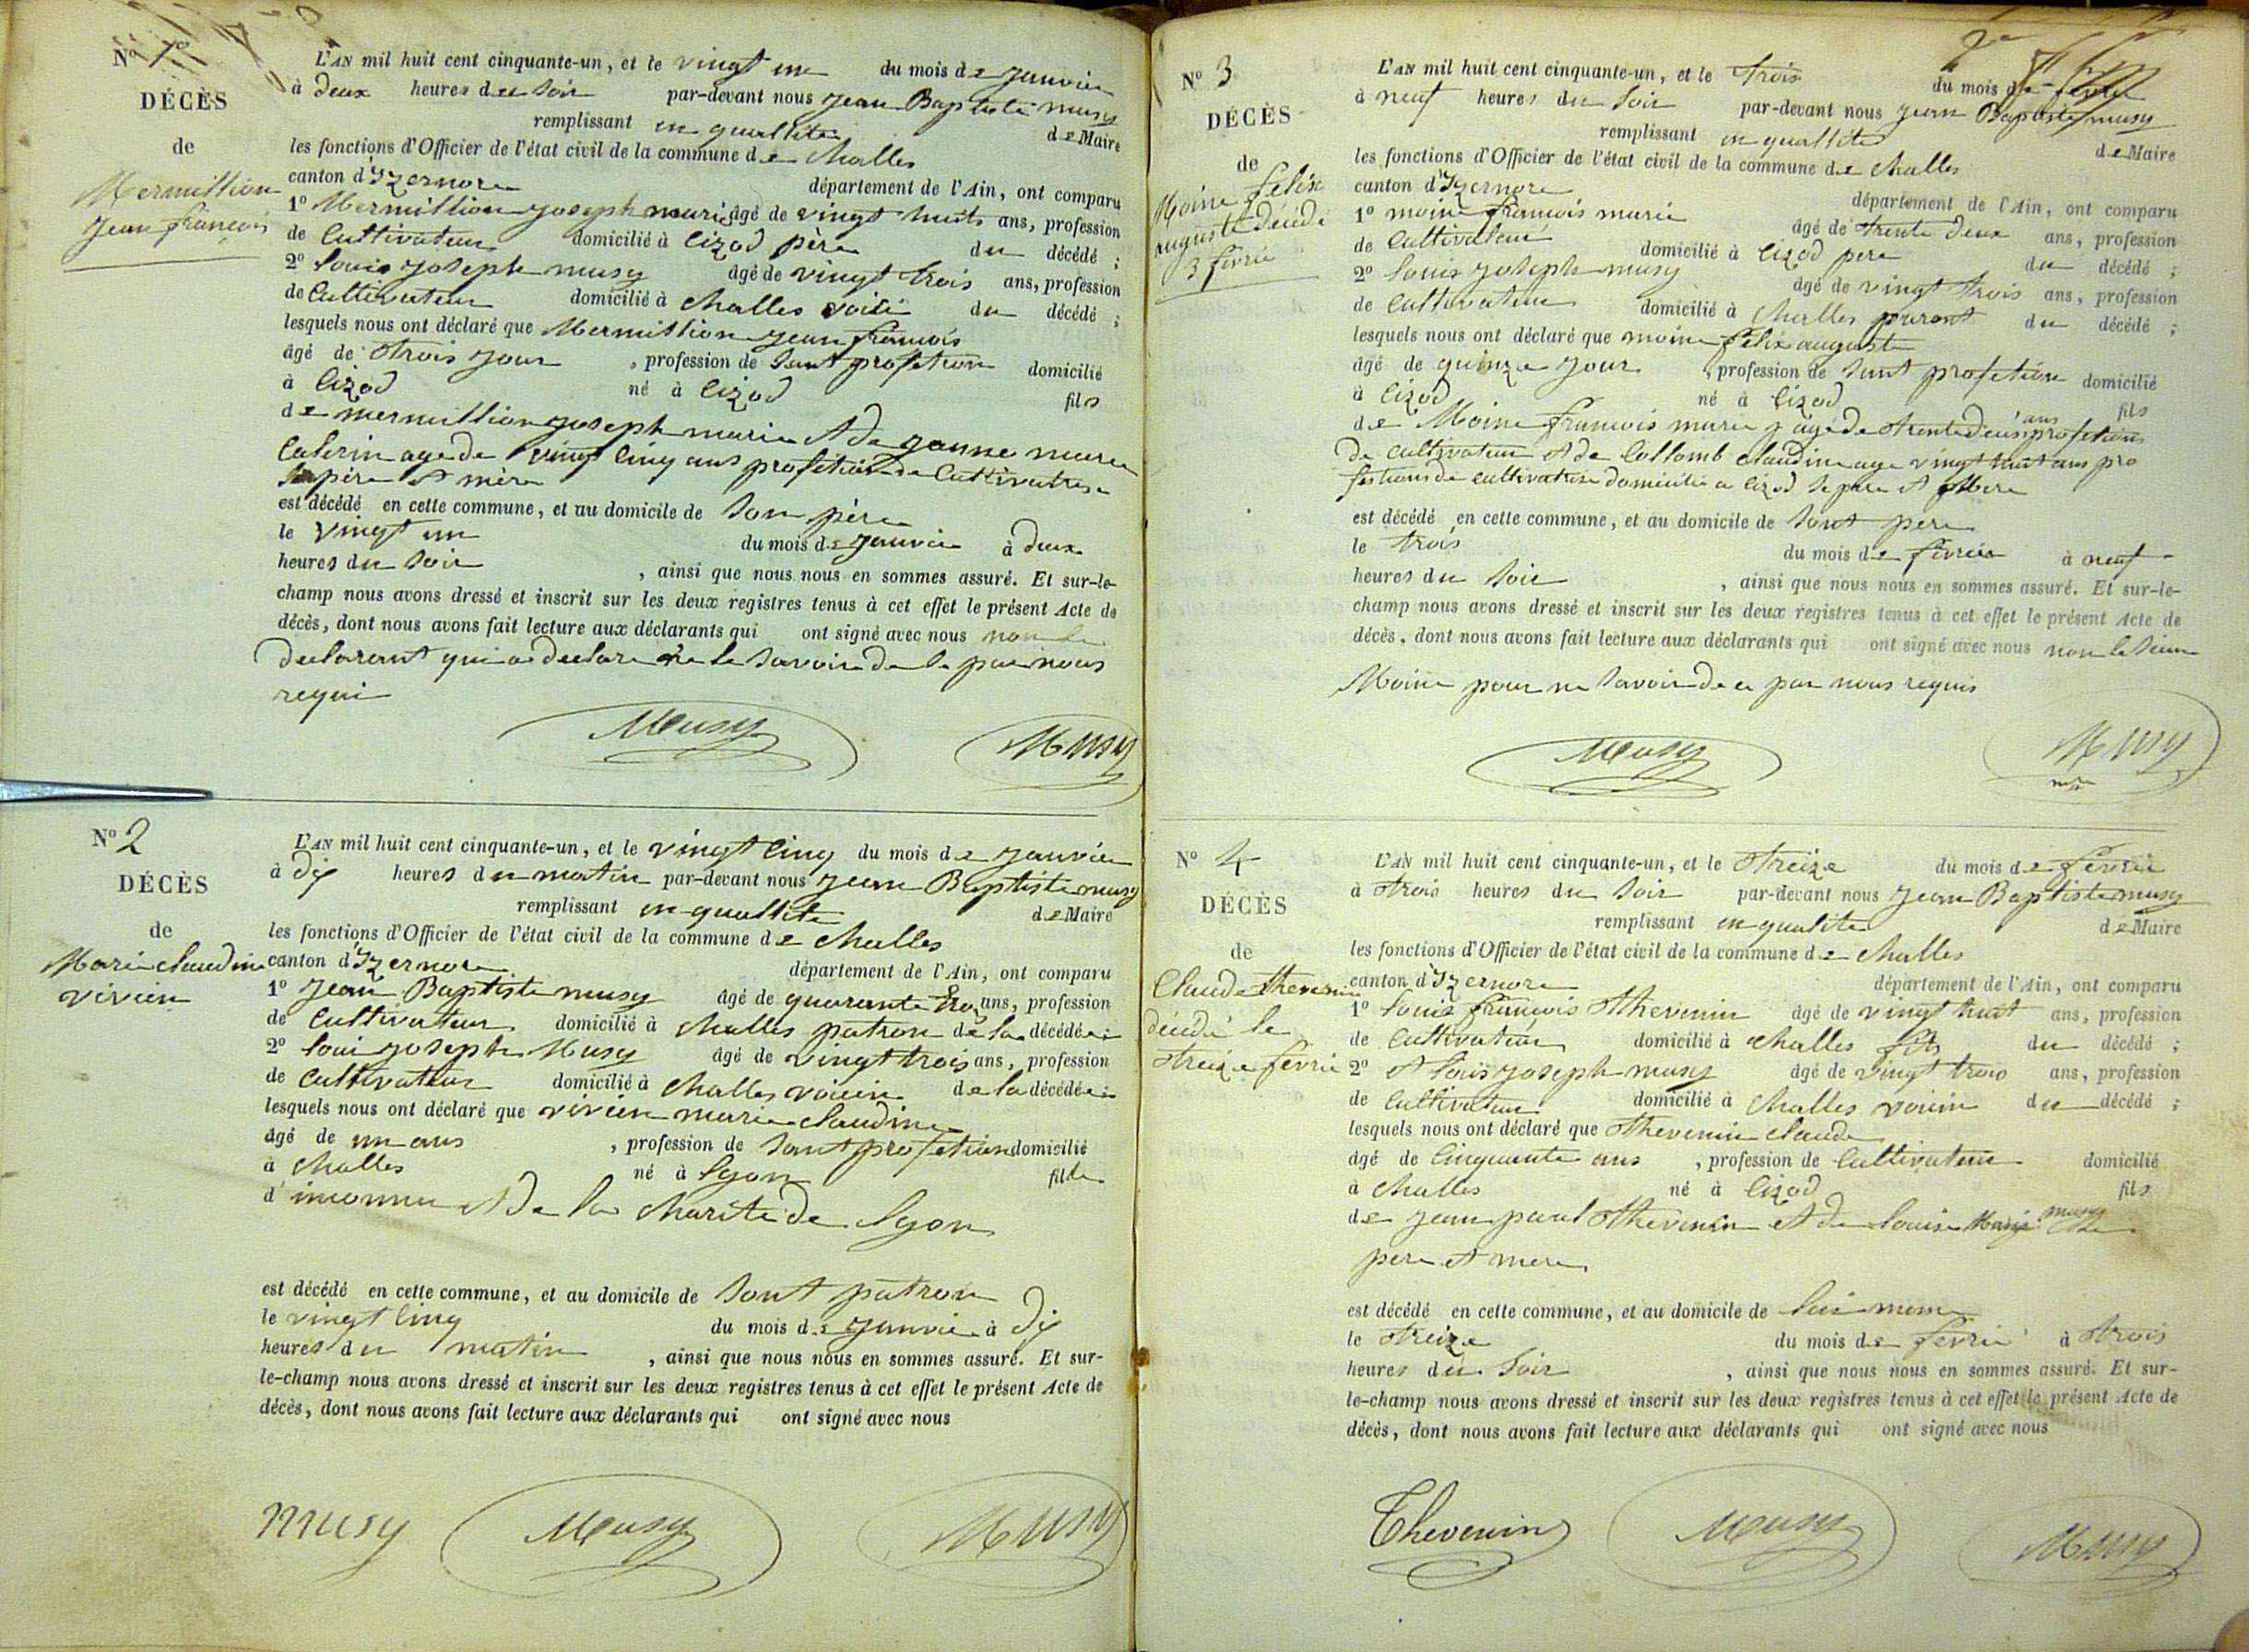 Nº 1er
DÉCÈS
de
Mermillion
Jean françois
L'AN mil huit cent cinquante-un, et le vingt un du mois de Janvier
à deux heures du soir par-devant nous Jean Baptiste musy
remplissant en quallité de Maire
les fonctions d'Officier de l'état civil de la commune de Challes
canton d'Izernore département de l'Ain, ont comparu
1º Mermillion Joseph marie âgé de vingt huit ans, profession
de Cultivateur domicilié à Cizod père du décédé ;
2º Louis Joseph musy âgé de vingt trois ans, profession
de Cultivateur domicilié à Challes voisi du décédé ;
lesquels nous ont déclaré que Mermillion Jean françois
âgé de trois Jour , profession de sant profetion domicilié
à Cizod né à Cizod fils
de mermillion Joseph marie et de Jeanne marie
Caterin age de vingt Cinq ans profétion de Cultivatrise
se père et mère
est décédé en cette commune, et au domicile de son père
le vingt un du mois de Janvier à deux
heures du soir , ainsi que nous nous en sommes assuré. Et sur-le-
champ nous avons dressé et inscrit sur les deux registres tenus à cet effet le présent Acte de
décès, dont nous avons fait lecture aux déclarants qui ont signé avec nous non le
declarant qui a declare ne le savoir de se par nous
requi
Musy Musy
Nº 2
DÉCÈS
de
Marie claudine
vivien
L'AN mil huit cent cinquante-un, et le vingt Cinq du mois de Janvier
à dix heures du matin par-devant nous Jean Baptiste musy
remplissant en quallité de Maire
les fonctions d'Officier de l'état civil de la commune de Challes
canton d'Izernore département de l'Ain, ont comparu
1º Jean Baptiste musy âgé de quarante ans, profession
de Cultivateur domicilié à Challes patron de la décédée ;
2º Loui Joseph Musy âgé de vingt trois ans, profession
de Cultivateur domicilié à Challes voisin de la décédée ;
lesquels nous ont déclaré que vivien marie claudine
âgé de un ans , profession de sant profetion domicilié
à Challes né à Lyon fille
d'inconnu et de la Charité de Lyon
est décédé en cette commune, et au domicile de sont patron
le vingt Cinq du mois de Janvier à dix
heures du matin , ainsi que nous nous en sommes assuré. Et sur-
le-champ nous avons dressé et inscrit sur les deux registres tenus à cet effet le présent Acte de
décès, dont nous avons fait lecture aux déclarants qui ont signé avec nous
musy Musy Musy
2e
Nº 3
DÉCÈS
de
Moine félix
auguste décédé
3 févrié
L'AN mil huit cent cinquante-un, et le trois du mois de févrié
à neuf heures du soir par-devant nous Jean Baptiste musy
remplissant en quallité de Maire
les fonctions d'Officier de l'état civil de la commune de Challes
canton d'Izernore département de l'Ain, ont comparu
1º moine françois marie âgé de trente deux ans, profession
de Cultivateur domicilié à Cizod pere du décédé ;
2º Louis Joseph musy âgé de vingt trois ans, profession
de Cultivateur domicilié à Challes parant du décédé ;
lesquels nous ont déclaré que moine félix auguste
âgé de quinze Jour , profession de sant profetion domicilié
à Cizod né à Cizod fils
de Moine françois marie agé de trente deus ans profetion
de Cultivateur et de Collomb claudine age vingt huit ans pro
festions de cultivatrise domicilie a Cizod se pere et Mere
est décédé en cette commune, et au domicile de sont pere
le trois du mois de février à neuf
heures du soir , ainsi que nous nous en sommes assuré. Et sur-le-
champ nous avons dressé et inscrit sur les deux registres tenus à cet effet le présent Acte de
décès, dont nous avons fait lecture aux déclarants qui ont signé avec nous non le sieur
Moine pour ne savoir de ce par nous requis
Musy Musy
Nº 4
DÉCÈS
de
Claude thevenin
décédé le
treize févrié
L'AN mil huit cent cinquante-un, et le treize du mois de févrié
à trois heures du soir par-devant nous Jean Baptiste musy
remplissant en qualité de Maire
les fonctions d'Officier de l'état civil de la commune de Challes
canton d'Izernore département de l'Ain, ont comparu
1º Louis françois thevenin âgé de vingt huit ans, profession
de Cultivateur domicilié à Challes fils du décédé ;
2º et Louis Joseph musy âgé de vingt trois ans, profession
de Cultivateur domicilié à Challes voisin du décédé ;
lesquels nous ont déclaré que thevenin claude
âgé de Cinquante ans , profession de Cultivateur domicilié
à Challes né à Cizod fils
de Jean paul thevenin et de Louise Marie musy
pere et mere
est décédé en cette commune, et au domicile de lui meme
le treize du mois de févrié à trois
heures du soir , ainsi que nous nous en sommes assuré. Et sur-
le-champ nous avons dressé et inscrit sur les deux registres tenus à cet effet le présent Acte de
décès, dont nous avons fait lecture aux déclarants qui ont signé avec nous
Thevenin Musy Musy